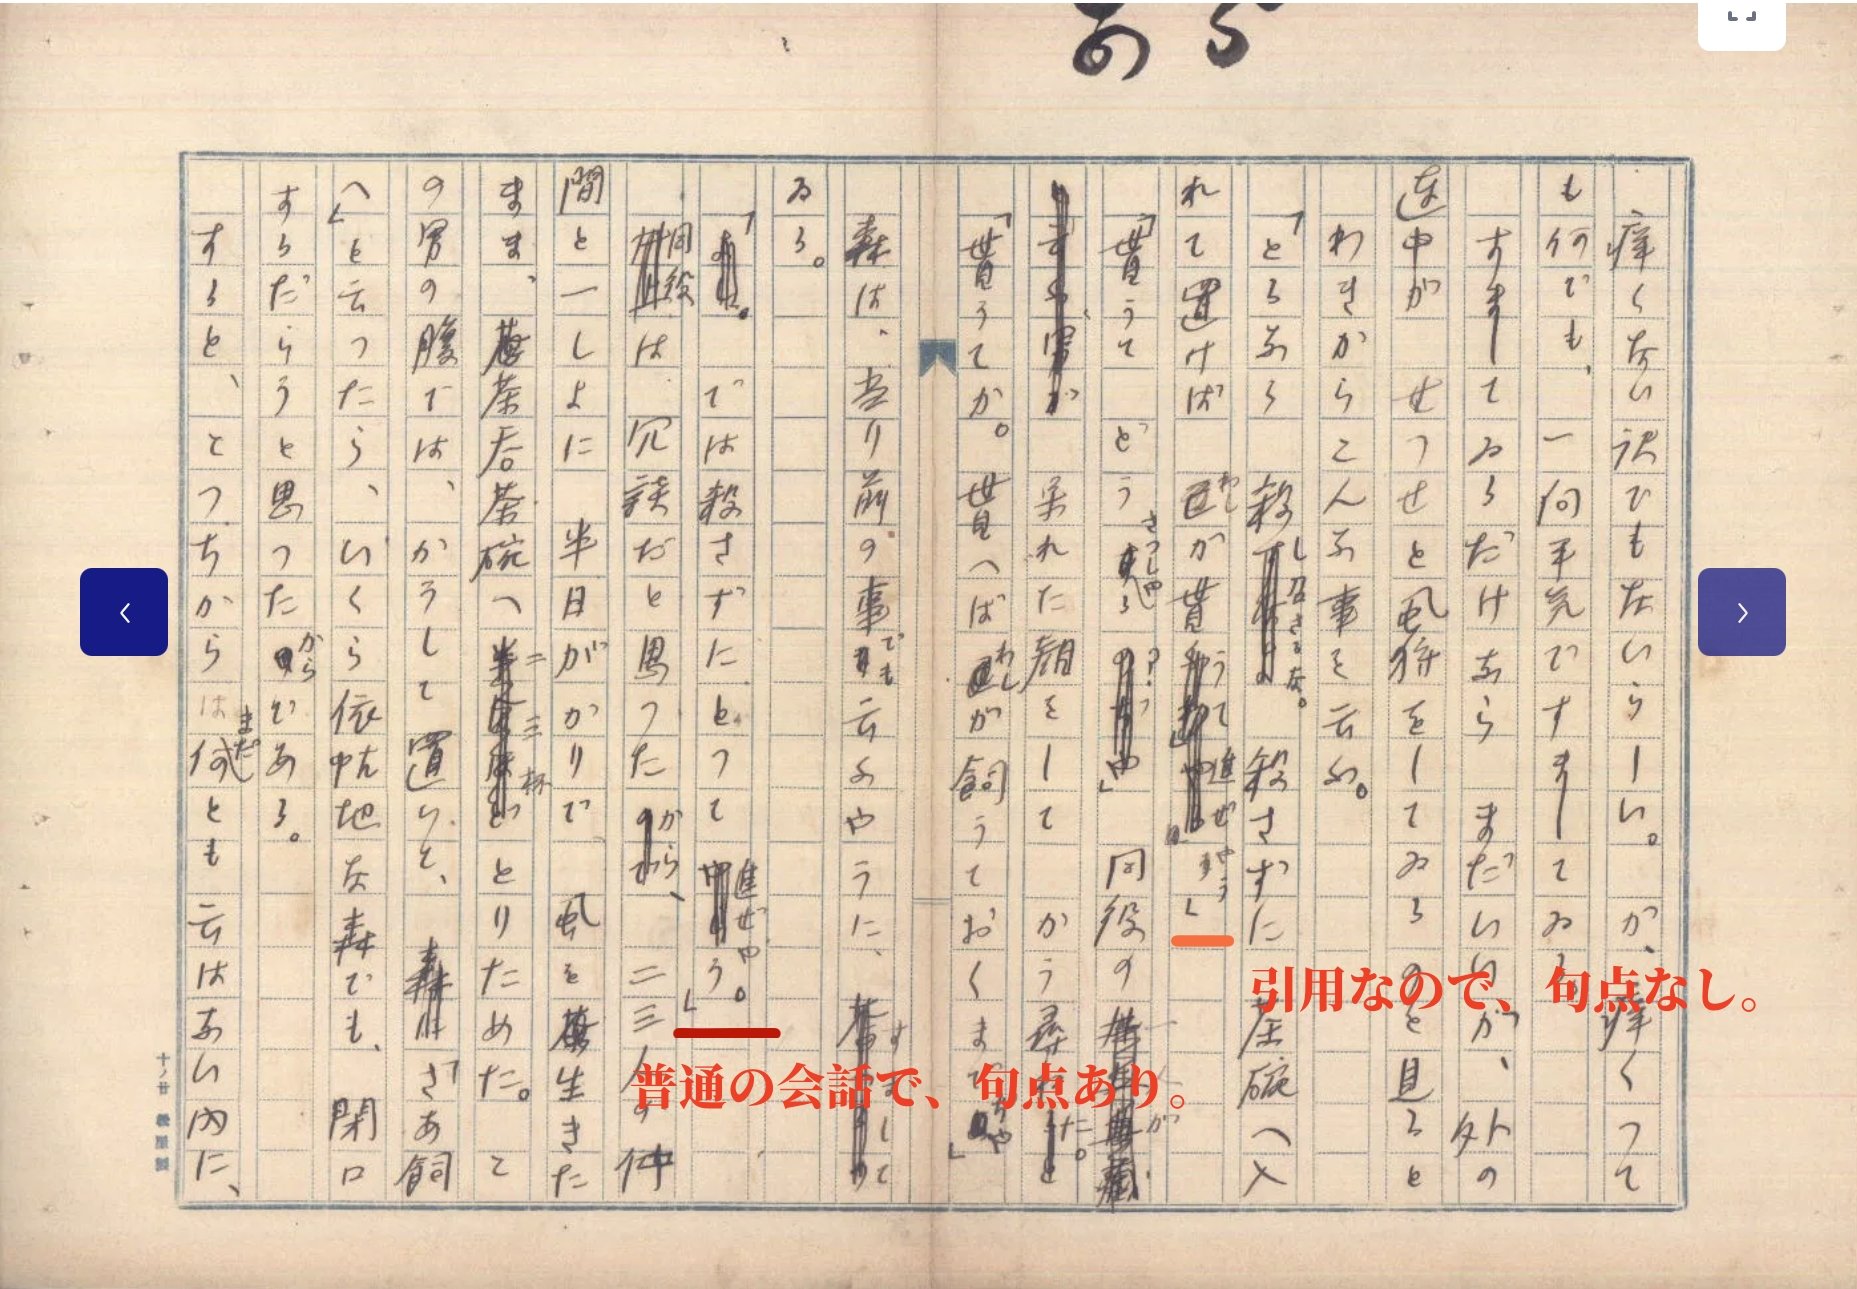 痒くない訳でもないらしい。が、痒くつて
も何でも、一向平気ですましてゐる。
すましてゐるだけなら まだいいが、外の
連中が せつせと虱狩をしてゐるのを見ると
わきからこんな事を云ふ。
「とるなら 殺し召さるな。 殺さずに茶碗へ入
れて置けば わしが貰うて進ぜやう」
「貰うて どうさつしやる?」 同役の一人が
呆れた顔をして かう尋ねた。
「貰うてか。貰へば わしが飼うておくまでぢや」
森は、当り前の事でも云ふやうに、すまして
ゐる。
「では殺さずにとつて進ぜやう。」
同役は 冗談だと思つたから、 二三人の仲
間と一しよに 半日がかりで 虱を生きた
まま、茶呑茶碗へ二三杯とりためた。 こ
の男の腹では、かうして置いて、「さあ飼
へ」と云つたら、いくら依怙地な森でも、閉口
するだらうと思つたからである。
すると、こつちからはまだ何とも云はない内に、
十ノ廿 松屋製
引用なので、句点なし。
普通の会話で、句点あり。